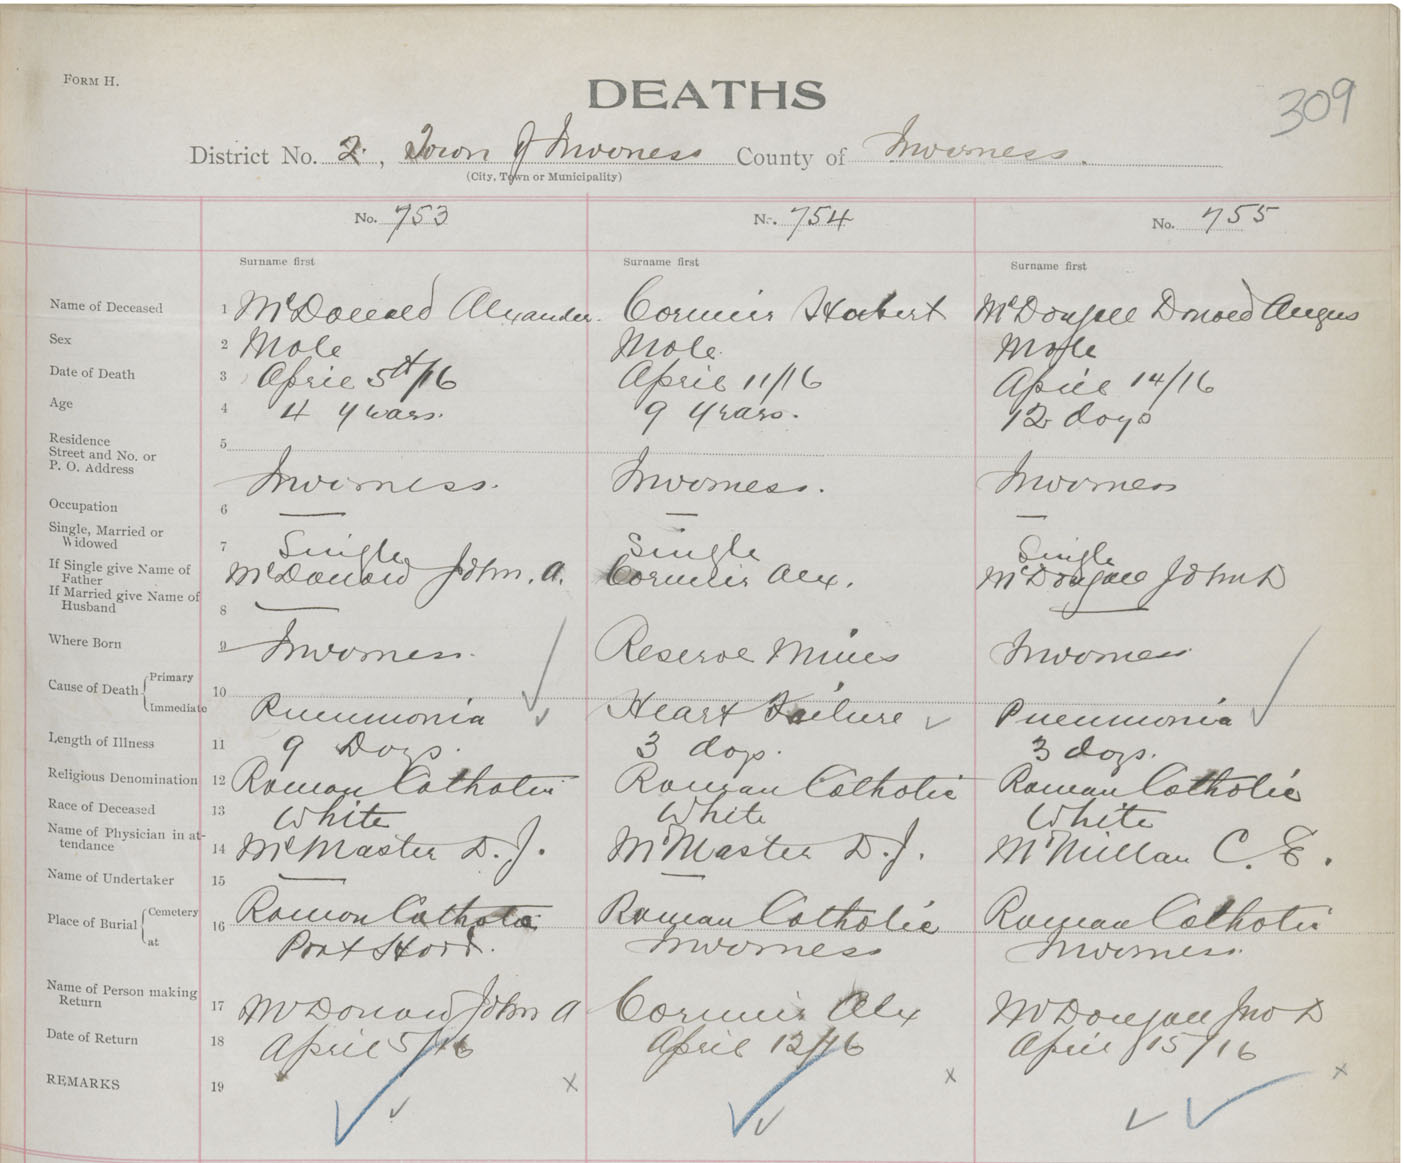 FORM H.
DEATHS
309
District No. 2, Town of Inverness County of Inverness.
(City, Town or Municipality)
No. 753 No. 754 No. 755
Surname first Surname first Surname first
Name of Deceased 1 McDonald Alexander. Cormier Hubert McDougall Donald Angus
Sex 2 Male Male Male
Date of Death 3 April 5th/16 April 11/16 April 14/16
Age 4 4 years. 9 years. 12 days
Residence 5
Street and No. or
P. O. Address Inverness. Inverness. Inverness
Occupation 6 — — —
Single, Married or
Widowed 7 Single Single Single
If Single give Name of
Father McDonald John. A. Cormier Alex. McDougall John D
If Married give Name of
Husband 8 — —
Where Born 9 Inverness. Reserve Mines Inverness
Cause of Death Primary 10
Immediate Pneumonia Heart Failure Pneumonia
Length of Illness 11 9 Days. 3 days. 3 days.
Religious Denomination 12 Roman Catholic Roman Catholic Roman Catholic
Race of Deceased 13 White White White
Name of Physician in at-
tendance 14 McMaster D. J. McMaster D. J. McMillan C. E.
Name of Undertaker 15 — —
Place of Burial Cemetery 16 Roman Catholic Roman Catholic Roman Catholic
at Port Hood. Inverness Inverness.
Name of Person making
Return 17 McDonald John A Cormier Alex McDougall Jno D
Date of Return 18 April 5/16 April 12/16 April 15/16
REMARKS 19 x x x